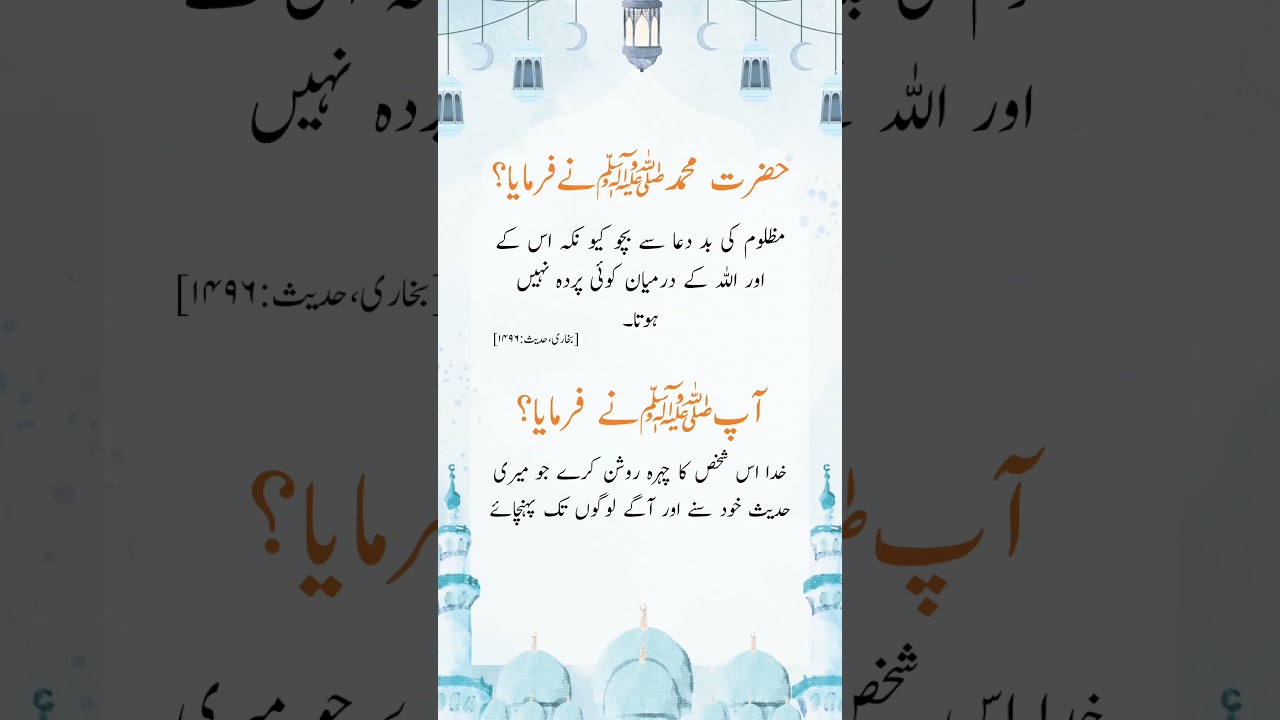 حضرت محمد ﷺ نے فرمایا؟
مظلوم کی بد دعا سے بچو کیو نکہ اس کے
اور اللہ کے درمیان کوئی پردہ نہیں
ہوتا۔
[بخاری، حدیث: ۱۴۹۶]
آپ ﷺ نے فرمایا؟
خدا اس شخص کا چہرہ روشن کرے جو میری
حدیث خود سنے اور آگے لوگوں تک پہنچائے